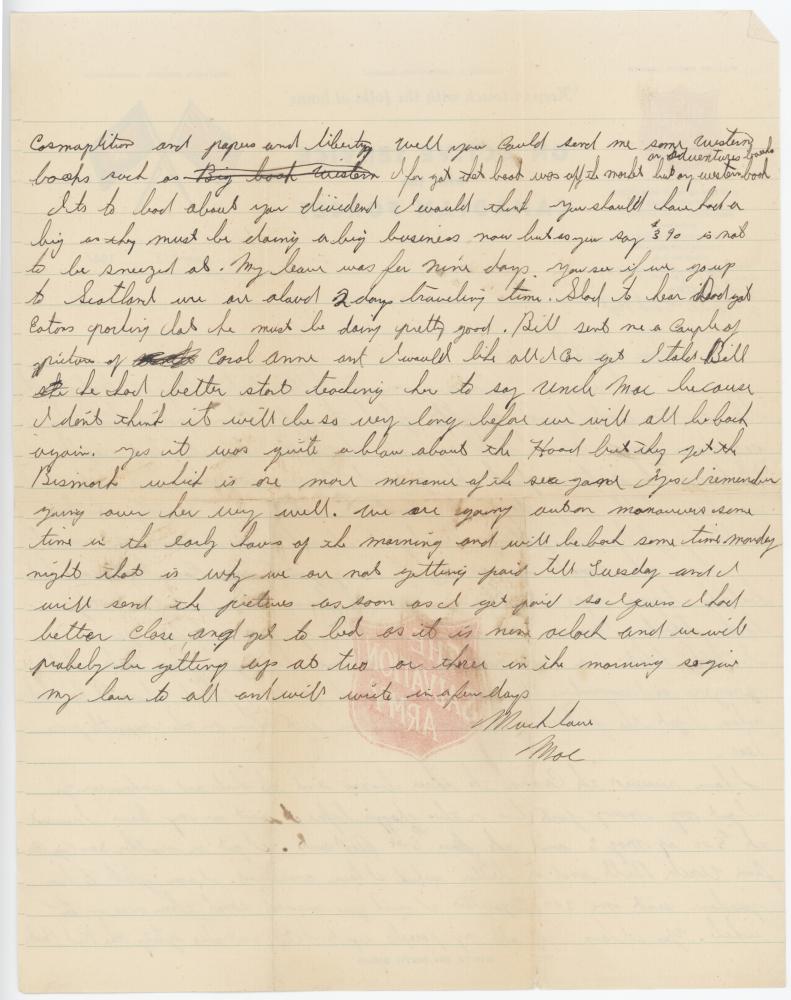 Cosmaplition and papers and liberty well you could send me some western
or adventures books
books such as Big book Western I for got that book was off the market but any western book
Its to bad about your dividend I would think you should have had a
big as they must be doing a big business now but as you say $3 90 is not
to be sneezed at. My leave was for nine days. you see if we go up
to Scotland we are aloud 2 days traveling time. Glad to hear Dad got
Eatons he must be doing pretty good. Bill sent me a couple of
pictures of Carol Anne and I would like all I can get I told Bill
he had better start teaching her to say Uncle Mac because
I don't think it will be so very long before we will all be back
again. yes it was quite a blow about the Hood but they got the
Bismark which is one more menance of the sea gone yes I remember
going over her very well. we are going out on manouvers some
time in the early hours of the morning and will be back some time monday
night that is why we are not getting paid till Tuesday and I
will send the pictures as soon as I get paid so I guess I had
better close and get to bed as it is nine oclock and we will
probely be getting up at two or three in the morning so give
my love to all and will write in a few days
Much love
Mac
THE SALVATION ARMY